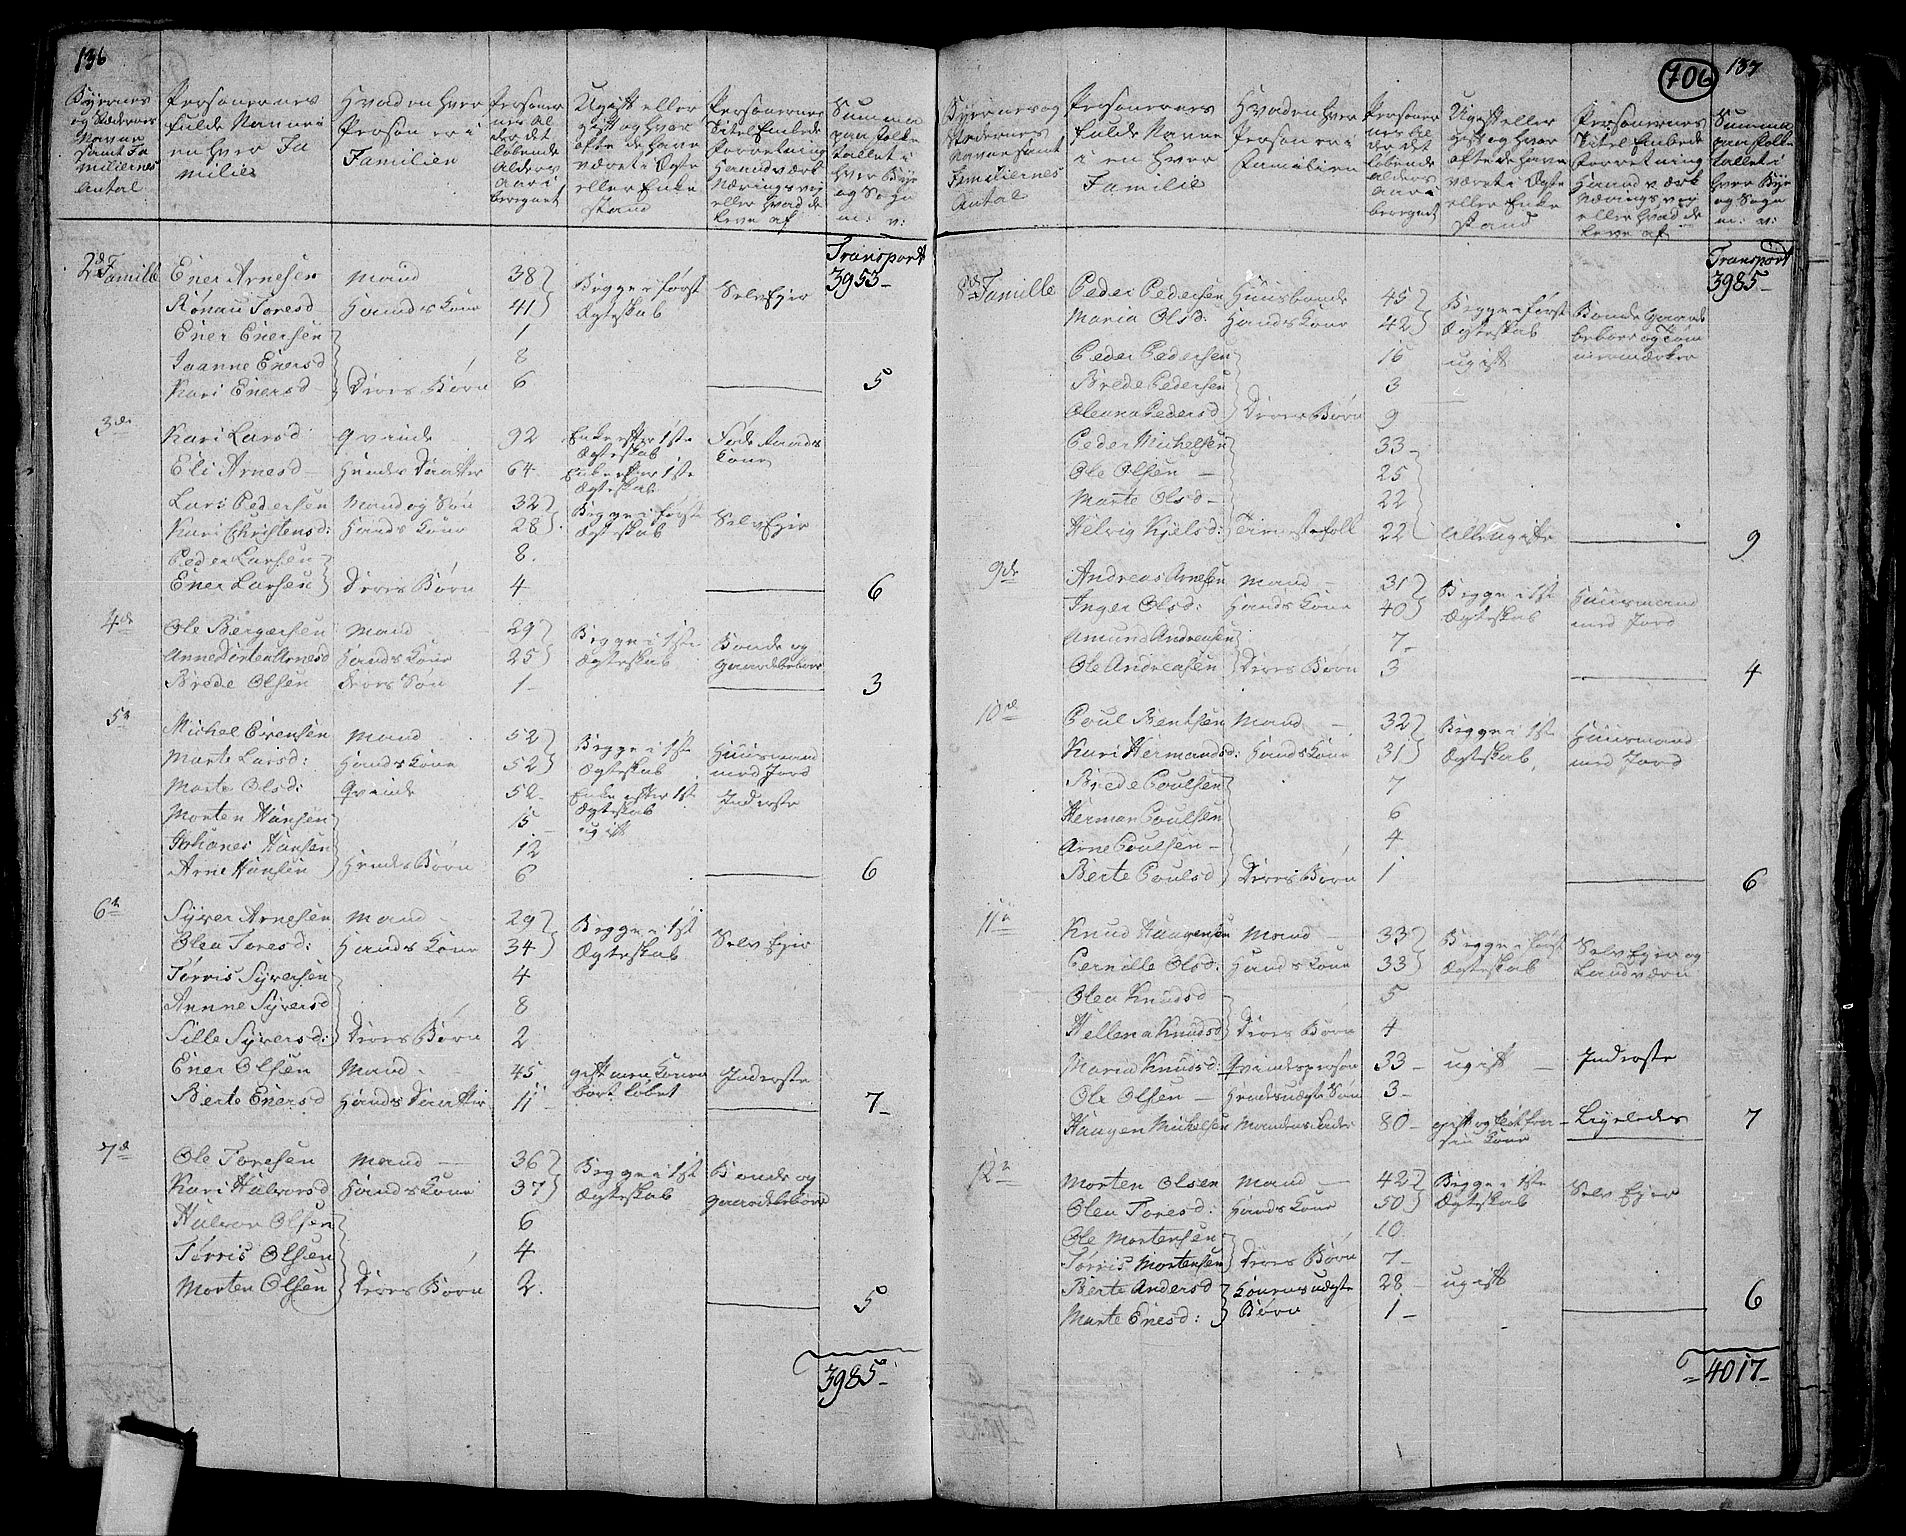 136
Byernes og Stædernes Navne samt Familiernes Antal | Personernes fulde Navne i en hver Familie | Hvad en hver Person er i Familien | Personernes Alder det løbende Alders Aar i beregnet | Ugift eller gift og hvor ofte de have været i Ægte eller Enke stand | Personernes Titel Embede Forretning Haandværk Næringsvej eller hvad de leve af | Summa paa folketallet i hver Bye og Sogn m: v:
Transport
3953
2d Familie Ener Arnesen Mand 38 Begge i først Ægteskab Selv Ejer
Rønau Toresd Hands Kone 41
Ener Enersen 1
Joanne Enersd 8
Kari Enersd Deres Børn 6 5
3de Kari Larsd Qvinde 92 Enke efter 1ste Ægteskab Føde Raads Kone
Eli Arnesd Hendes Daatter 64 Enke efter 1ste Ægteskab
Lars Pedersen Mand og Søn 32 Begge i først Ægteskab Selv Ejer
Kari Christensd: Hands Kone 28
Peder Larsen 8
Ener Larsen Deres Børn 4 6
4de Ole Børgersen Mand 29 Begge i 1ste Ægteskab Bonde og Gaardebeboer
Anne Dorten Arnesd Hands Kone 25
Brede Olsen Deres Søn 1 3
5te Michel Evensen Mand 52 Begge i 1ste Ægteskab Huusmand med Jord
Marte Larsd: Hands Kone 52
Marte Olsd: Qvinde 52 Enke efter 1st Ægteskab Inderste
Morten Hansen 15 ugift
Johanes Hansen 12
Arne Hansen Hendes Børn 6 6
6te Syver Arnesen Mand 29 Begge i 1st Ægteskab Selv Ejer
Olea Toresd: Hands Kone 34
Torris Syversen 4
Annne Syversd 8
Sille Syversd: Deres Børn 2
Ener Olsen Mand 45 gift men Konen bort løbet Inderste
Berte Enersd Hands Daatter 11 7
7de Ole Toresen Mand 36 Begge i 1st Ægteskab Bonde og Gaardebeboer
Kari Halvorsd Hands Kone 37
Halvor Olsen 6
Torris Olsen 4
Morten Olsen Deres Børn 2 5
3985
706 137
Byernes og Stedernes Navne samt Familiernes Antal | Personernes fulde Navne i en hver Familie | Hvad en hver Person er i Familien | Personernes Alder det løbende Alders Aar i beregnet | Ugift eller gift og hvor ofte de have været i Ægte eller Enke stand | Personernes Titel Embede Forretning Haandværk Næringsvej eller hvad de leve af | Summa paa folketallet i hver Bye og Sogn m: v:
Transport
3985
8de Familie Peder Pedersen Huusbonde 45 Begge i først Ægteskab Bonde Gaardebeboer og Tømmermærker
Maria Olsd: Hands Kone 42
Peder Pedersen 16 ugift
Brede Pedersen 3
Oleana Pedersd Deres Børn 9
Peder Michelsen 33
Ole Olsen 25
Marte Olsd 22
Helvig Kjelsd: Tienestefolk 22 Alle Ugifte 9
9de Andreas Arnesen Mand 31 Begge i 1st Ægteskab Huusmand med Jord
Inger Olsd: Hands Kone 40
Amund Andreasen 7
Ole Andreasen Deres Børn 3 4
10de Poul Berntsen Mand 32 Begge i 1st Ægteskab Huusmand med Jord
Kari Hermandsd: Hands Kone 31
Brede Poulsen 7
Herman Poulsen 6
Arne Poulsen 4
Berte Poulsd Deres Børn 1 6
11te Knud Haagensen Mand 33 Begge i først Ægteskab Selv Ejer og Landværn
Pernille Olsd: Hands Kone 33
Olea Knudsd 5
Hellena Knudsd Deres Børn 4
Maria Knudsd: Qvindesperson 33 ugift Inderste
Ole Olsen Hendes uægte Søn 3
Haagen Michelsen Mandens Fader 80 gift og skilt fra sin Kone Ligeledes 7
12te Morten Olsen Mand 42 Begge i 1ste Ægteskab Selv Ejer
Olea Toresd: Hands Kone 50
Ole Mortensen 10
Torris Mortensen Deres Børn 7
Berte Andersd Konens uægte Børn 28 ugift
Marte Enesd: 1 6
4017